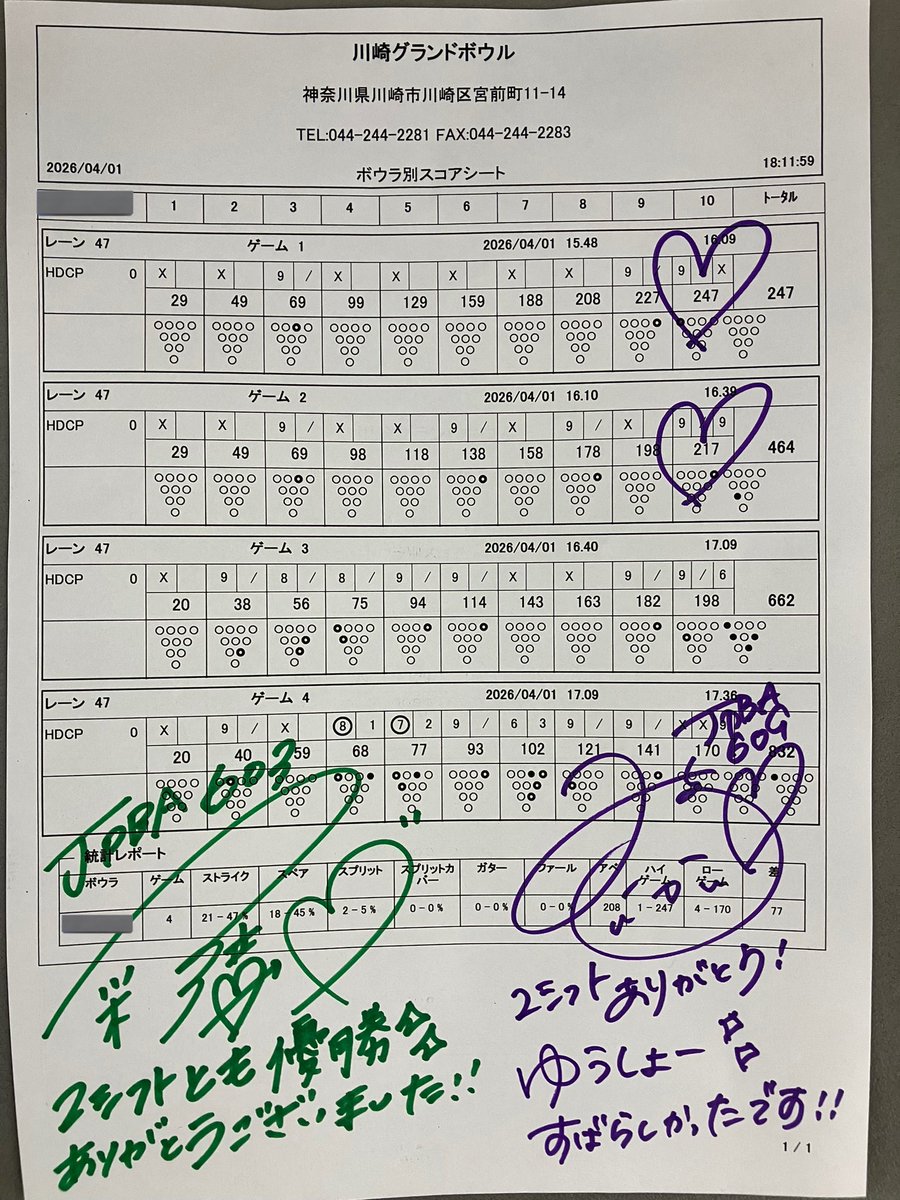 川崎グランドボウル
神奈川県川崎市川崎区宮前町11-14
TEL:044-244-2281 FAX:044-244-2283
2026/04/01 ボウラ別スコアシート 18:11:59
1 2 3 4 5 6 7 8 9 10 トータル
レーン 47 ゲーム 1 2026/04/01 15.48 16.09
HDCP 0 X X 9 / X X X X X 9 / 9 X
29 49 69 99 129 159 188 208 227 247 247
レーン 47 ゲーム 2 2026/04/01 16.10 16.39
HDCP 0 X X 9 / X X 9 / X 9 / X 9 / 9
29 49 69 98 118 138 158 178 198 217 464
レーン 47 ゲーム 3 2026/04/01 16.40 17.09
HDCP 0 X 9 / 8 / 8 / 9 / 9 / X X 9 / 9 / 6
20 38 56 75 94 114 143 163 182 198 662
レーン 47 ゲーム 4 2026/04/01 17.09 17.36
HDCP 0 X 9 / X 8 1 7 2 9 / 6 3 9 / 9 / X X 9
20 40 59 68 77 93 102 121 141 170 832
JPBA 603
JPBA
609
統計レポート
ボウラ ゲーム ストライク スペア スプリット スプリットカバー ガター ファール アベ ハイゲーム ローゲーム 差
4 21-47% 18-45% 2-5% 0-0% 0-0% 0-0% 208 1-247 4-170 77
2シフトとも優勝
ありがとうございました!!
2シフトありがとう!
ゆうしょー
すばらしかったです!!
1/1